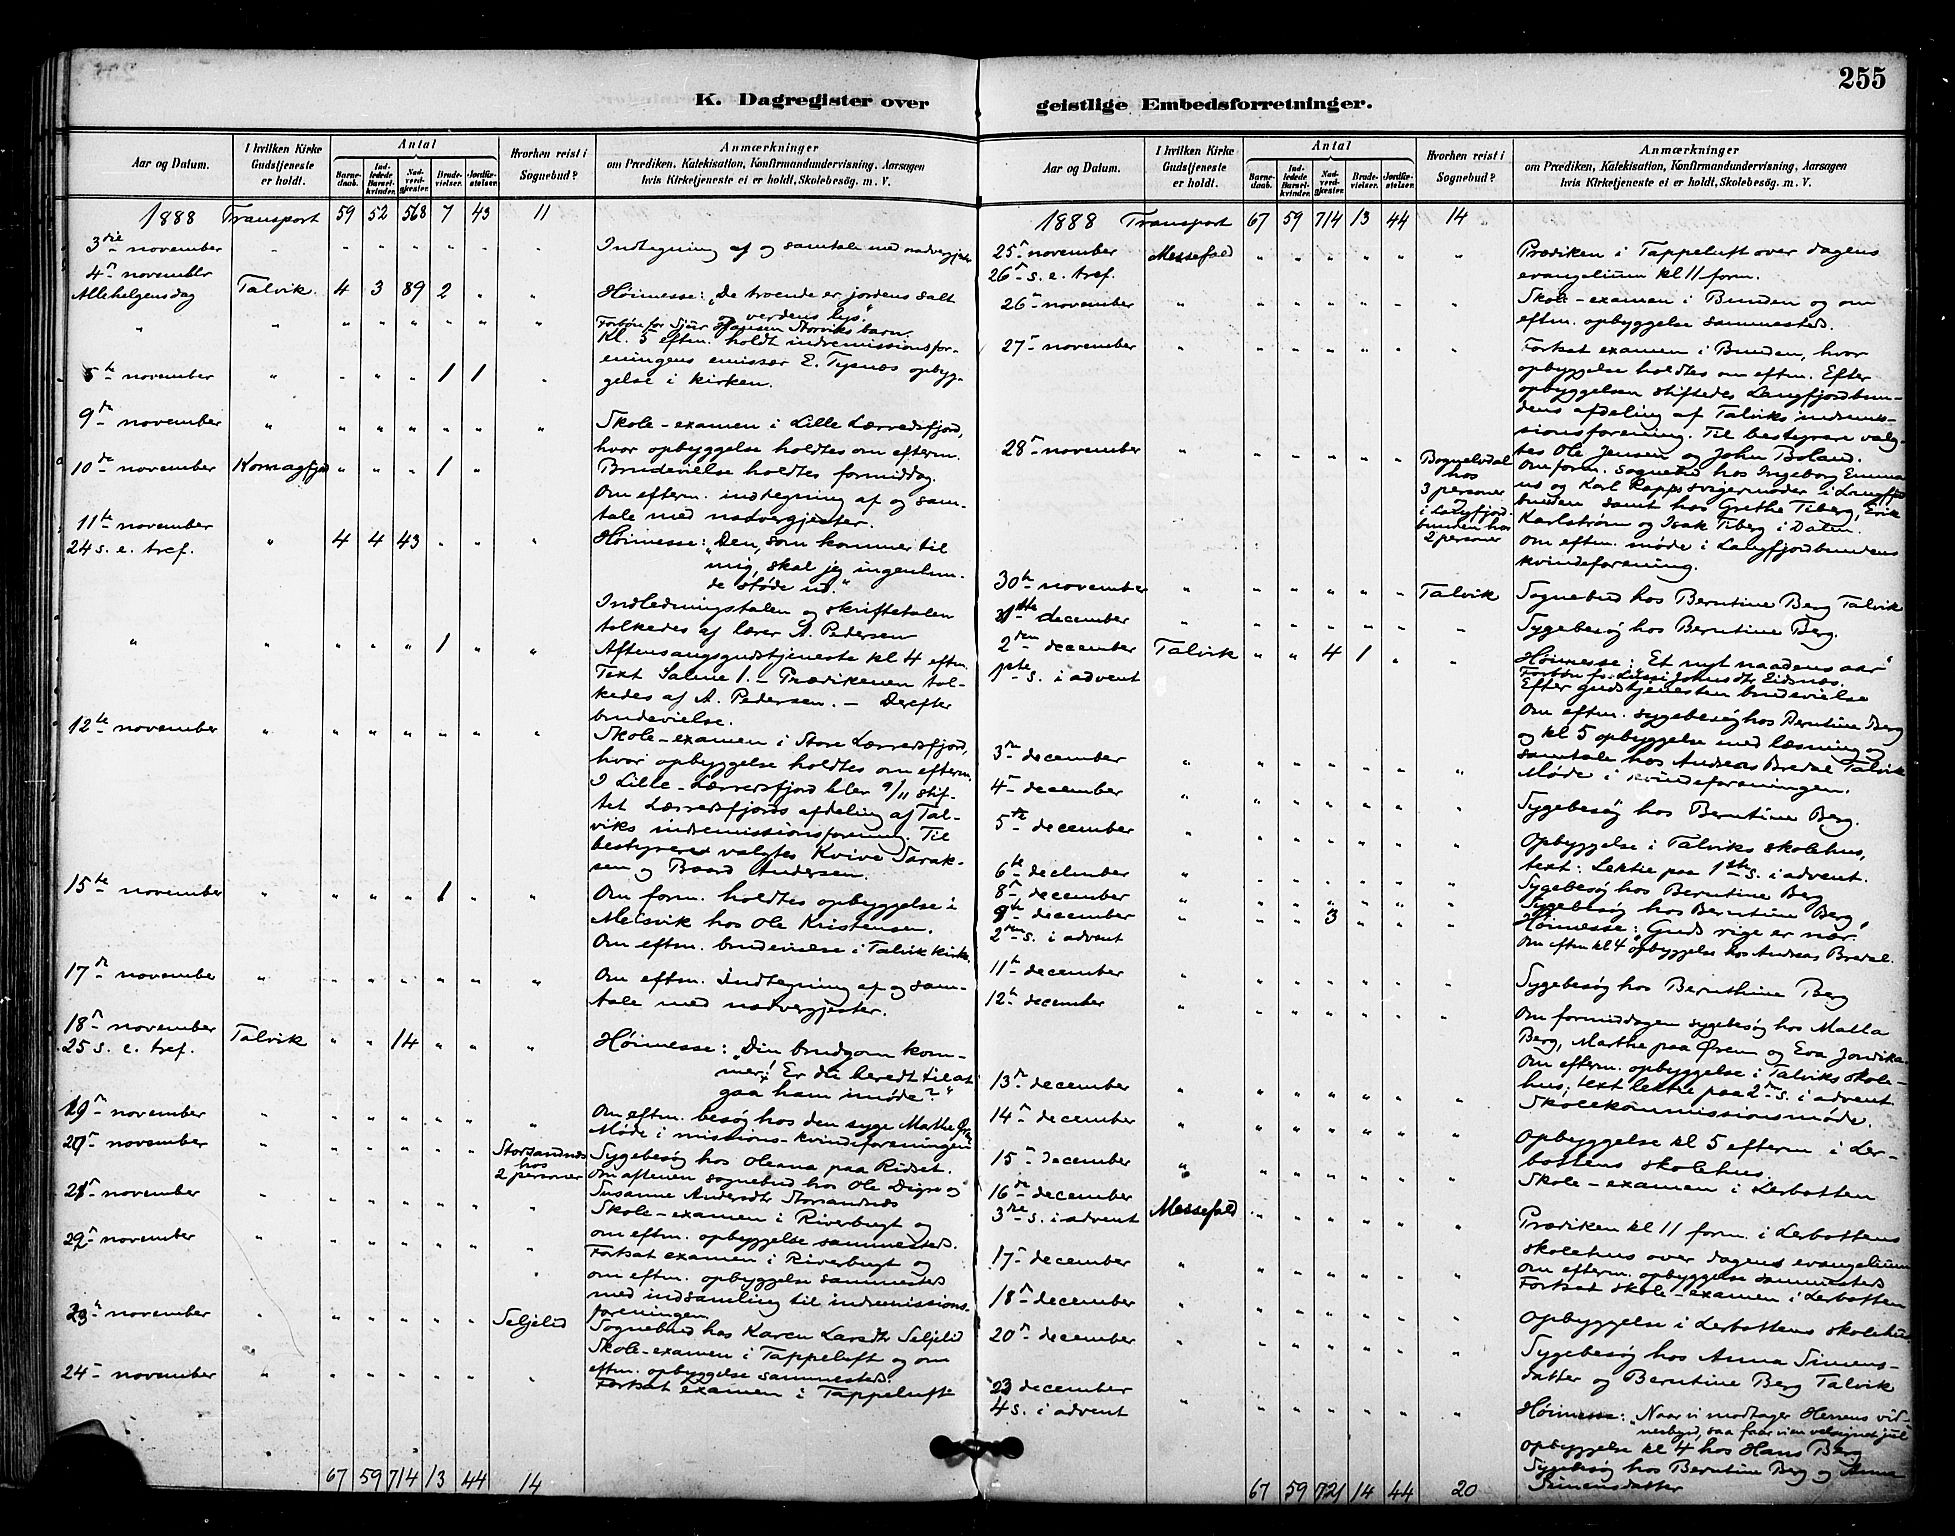 255
K. Dagregister over
geistlige Embedsforretninger.
Aar og Datum.
I hvilken Kirke Gudstjeneste er holdt.
Antal
Barne-daab.
Ind-ledede Barsel-kvinder.
Nad-verd-gjester.
Brude-vielser.
Jordfæ-stelser.
Hvorhen reist i Sognebud?
Anmærkninger
om Prædiken, Katekisation, Konfirmandundervisning, Aarsagen
hvis Kirketjeneste ei er holdt, Skolebesøg. m. V.
1888 Transport 59 52 568 7 43 11
3die november " " " " " " " Indtegning af og samtale med nadvergjester
4de november
Allehelgensdag Talvik 4 3 89 2 " " Høimesse: "De troende er jordens salt
og verdens lys."
Forbøn for Sjur Hansen Storviks barn.
Kl. 5 eftm. holdt indremissionsfor-
eningens emissær E. Tysnæs opbyg-
5te november " " " " 1 1 " gelse i kirken.
9de november " " " " " " " Skole-examen i Lille Lærredsfjord,
hvor opbyggelse holdtes om efterm.
10de november Komagfjord " " " 1 " Brudevielse holdtes formiddag.
Om efterm. indtegning af og sam-
tale med nadvergjester.
11te november
24 s. e. tref. " 4 4 43 " " " Høimesse: "Den, som kommer til
mig, skal jeg ingenlun-
de støde ud."
Indledningstalen og skriftetalen
tolkedes af lærer A. Pedersen
" " " " " 1 " " Aftensangsgudstjeneste kl 4 eftm.
Text Salme 1. – Prædikenen tol-
kedes af A. Pedersen. – Derefter
brudevielse.
12te november " " " " " " " Skole-examen i Store Lærredsfjord,
hvor opbyggelse holdtes om efterm.
I Lille-Lærredsfjord blev 9/11 stif-
tet Lærredsfjords afdeling af Tal-
viks indremissionsforening. Til
bestyrere valgtes Kvive Sarak-
sen og Baard Andersen.
15te november " " " " 1 " " Om form. holdtes opbyggelse i
Melsvik hos Ole Kristensen.
Om eftm. brudevielse i Talvik kirke.
17de november " " " " " " " Om eftm. Indtegning af og sam-
tale med nadvergjester.
18de november
25 s. e. tref. Talvik " " 14 " " " Høimesse: "Din brudgom kom-
mer! Er du beredt til at
gaa ham imøde?"
19de november " " " " " " " Om eftm. besøg hos den syge Marthe
Møde i missions-kvindeforeningen
20de november " " " " " " Storsandnes hos 2 personer Sygebesøg hos Oleana paa Ridset.
Om aftenen sognebud hos Ole Digre og
Susanne Andersdtr Storsandnes
21de november " " " " " " " Skole-examen i Riverbugt og
om eftm. opbyggelse sammesteds.
22de november " " " " " " " Fortsat examen i Riverbugt og
om eftm. opbyggelse sammesteds
med indsamling til indremissions-
foreningen.
23de november " " " " " " Seljelid Sognebud hos Karen Larsdtr Seljelid
Skole-examen i Tappeluft og om
eftm. opbyggelse sammesteds.
24– november " " " " " " " Fortsat examen i Tappeluft
67 59 714 13 44 14
Aar og Datum.
I hvilken Kirke Gudstjeneste er holdt.
Antal
Barne-daab.
Ind-ledede Barsel-kvinder.
Nad-verd-gjester.
Brude-vielser.
Jordfæ-stelser.
Hvorhen reist i Sognebud?
Anmærkninger
om Prædiken, Katekisation, Konfirmandundervisning, Aarsagen
hvis Kirketjeneste ei er holdt, Skolebesøg. m. V.
1888 Transport 67 59 714 13 44 14
25de november Messefald " " " " " " Prædiken i Tappeluft over dagens
26de s. e. tref. evangelium kl 11 form.
26– november " " " " " " " Skole-examen i Bunden og om
eftm. opbyggelse sammesteds.
27– november " " " " " " " Fortsat examen i Bunden, hvor
opbyggelse holdtes om eftm. Efter
opbyggelsen stiftedes Langfjordbun-
dens afdeling af Talviks indremis-
sionsforening. Til bestyrere valg-
tes Ole Jensen og John Boland.
28de november " " " " " " Bognelvdal hos 3 personer i Langfjordbunden hos 2 personer Om form. sognebud hos Ingeborg
og Karl Rapps svigermoder i Langfjord
bunden samt hos Grethe Tiberg, Erik
Karlstrøm og Isak Tiberg i Dalen.
Om eftm. møde i Langfjordbundens
kvindeforening.
30te november " " " " " " Talvik Sognebud hos Berntine Berg Talvik
1ste december " " " " " " " Sygebesøg hos Berntine Berg.
2den december Talvik " " 4 1 " " Høimesse: "Et nyt naadens aar"
1ste s. i advent Forbøn for Lissi Johnsdtr Eidsnæs.
Efter gudstjenesten brudevielse
Om eftm. sygebesøg hos Berntine Berg
og kl 5 opbyggelse med læsning og
samtale hos Andreas Bredal Talvik
3de december " " " " " " " Møde i kvindeforeningen.
4– december " " " " " " " Sygebesøg hos Berntine Berg.
5te december " " " " " " " Opbyggelse i Talviks skolehus,
text: Lektie paa 1ste s. i advent.
6te december " " " " " " " Sygebesøg hos Berntine Berg
8de december " " " " " " " Sygebesøg hos Berntine Berg
9de december " " " 3 " " " Høimesse: Guds rige er nær!
2den s. i advent Om eftm kl 4 opbyggelse hos Andreas Bredal.
11te december " " " " " " " Sygebesøg hos Bernthine Berg
12te december " " " " " " " Om formiddagen sygebesøg hos Malla
Berg, Marthe paa Øren og Eva
Om efterm. opbyggelse i Talviks skole-
hus; text lektie paa 2den s. i advent
13de december " " " " " " " Skolekommissionsmøde.
14de december " " " " " " " Opbyggelse kl 5 efterm i Ler-
bottens skolehus.
15– december " " " " " " " Skole-examen i Lerbotten
16de december
3die s. i advent Messefald " " " " " " Prædiken kl 11 form. i Lerbottens
skolehus over dagens evangelium
Om efterm. opbyggelse sammesteds
17– december " " " " " " " Fortsat skole-examen i Lerbotten
18de december " " " " " " " Opbyggelse i Lerbottens skolehus
20de december " " " " " " " Sygebesøg hos Anna Simens-
datter og Berntine Berg Talvik
23 december
4 s. i advent " " " " " " " Høimesse: "Naar vi modtager Herrens vid-
nesbyrd, saa faar vi en velsignet jul"
Opbyggelse kl 4 hos Hans Berg
Sygebesøg hos Berntine Berg og Anna
Simensdatter
67 59 721 14 44 20